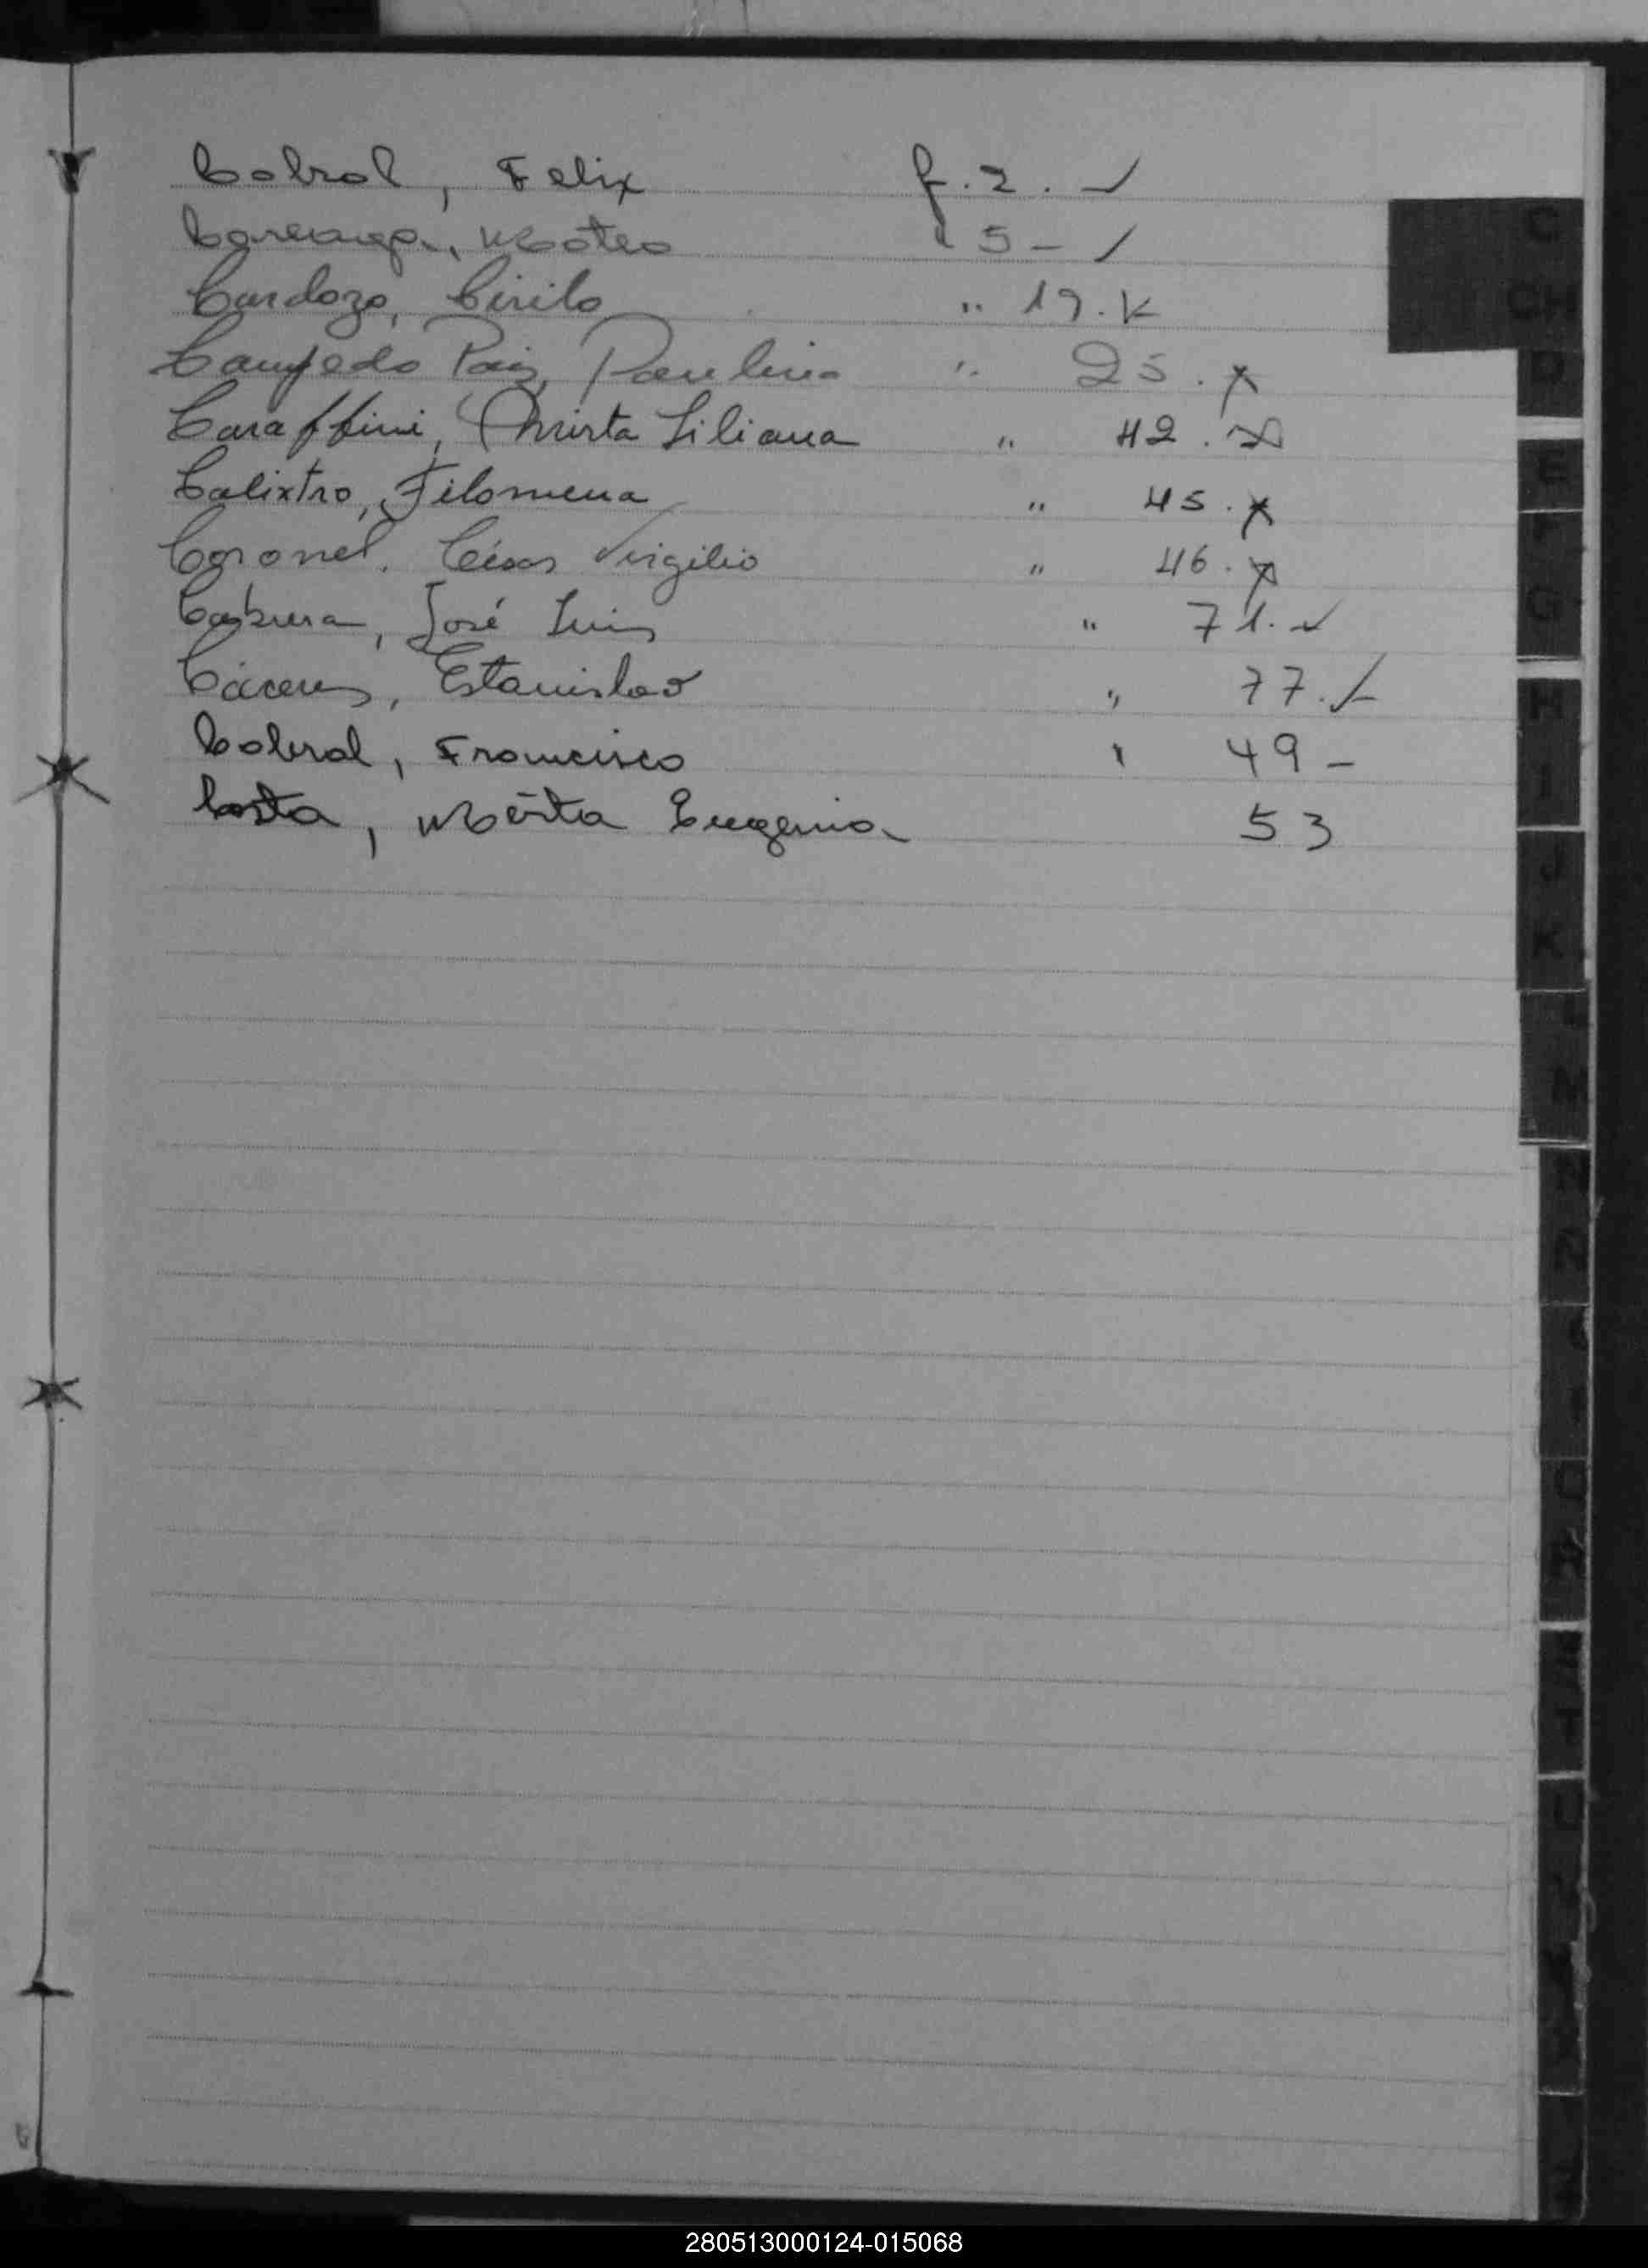 Cabral, Felix f. 2. ✓
Mateo " 5 -
Cardozo, Cirilo " 19.
Paulina " 25. x
Caraffini, Christa Liliana " 42.
Calixtro, Filomena " 45. x
Coronel. César Virgilio " 46. x
Cabrera, José Luis " 71. ✓
Cáceres, Estanislao " 77.
Cabral, Francisco " 49 -
Costa, Marta Eugenia 53
C
CH
D
E
F
G
H
I
J
K
M
280513000124-015068